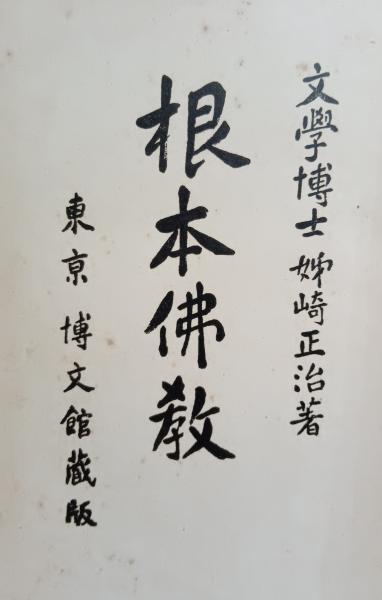 文學博士 姊崎正治著
根本佛教
東京 博文館藏版